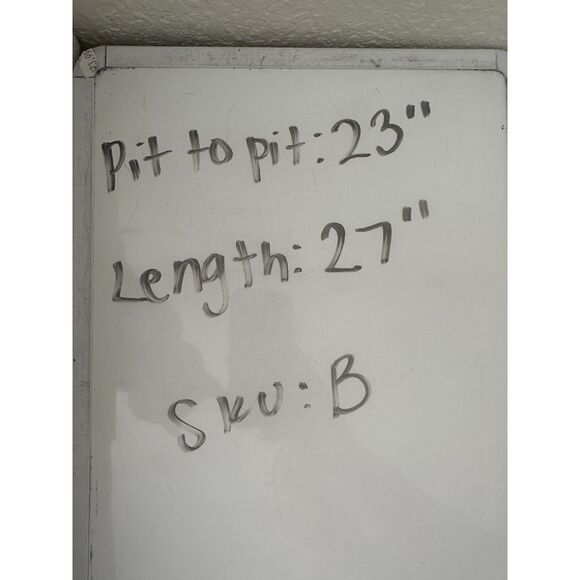 Pit to pit: 23"
Length: 27"
SKU: B